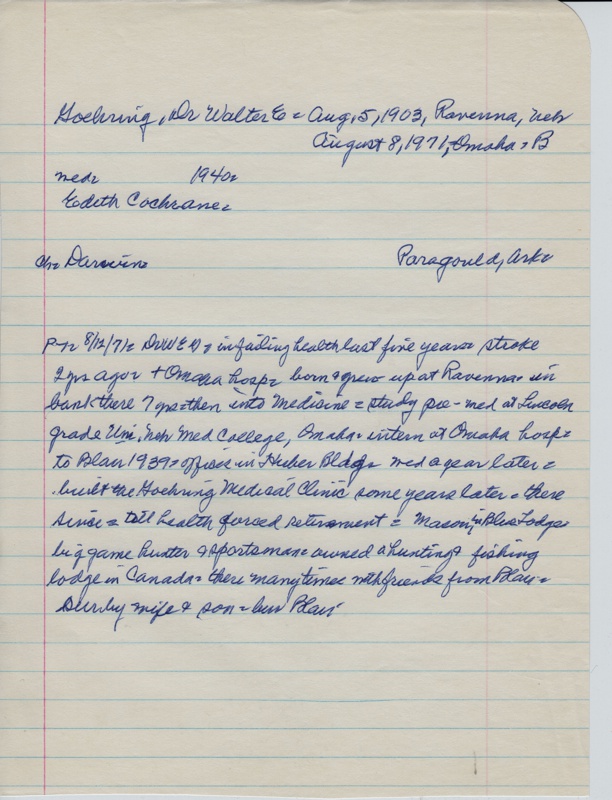 Goehring, Dr Walter E = Aug. 5, 1903, Ravenna, Neb
August 8, 1971, Omaha = B
med = 1940 =
Edith Cochrane =
ch = Darwin = Paragould, Ark =
P-T = 8/12/71 = Dr W E G = in failing health last five years = stroke
2 yrs ago = + Omaha hosp = born & grew up at Ravenna = in
bank there 7 yrs = then into medicine = study pre-med at Lincoln
grade Uni. Neb Med College, Omaha = intern at Omaha hosp =
to Blair 1939 = office in Huber Bldg = med a year later =
built the Goehring Medical Clinic some years later = there
since = till health forced retirement = Mason, in Blue Lodge =
big game hunter & sportsman = owned a hunting & fishing
lodge in Canada = there many times with friends from Blair =
Surv by wife & son = bur Blair